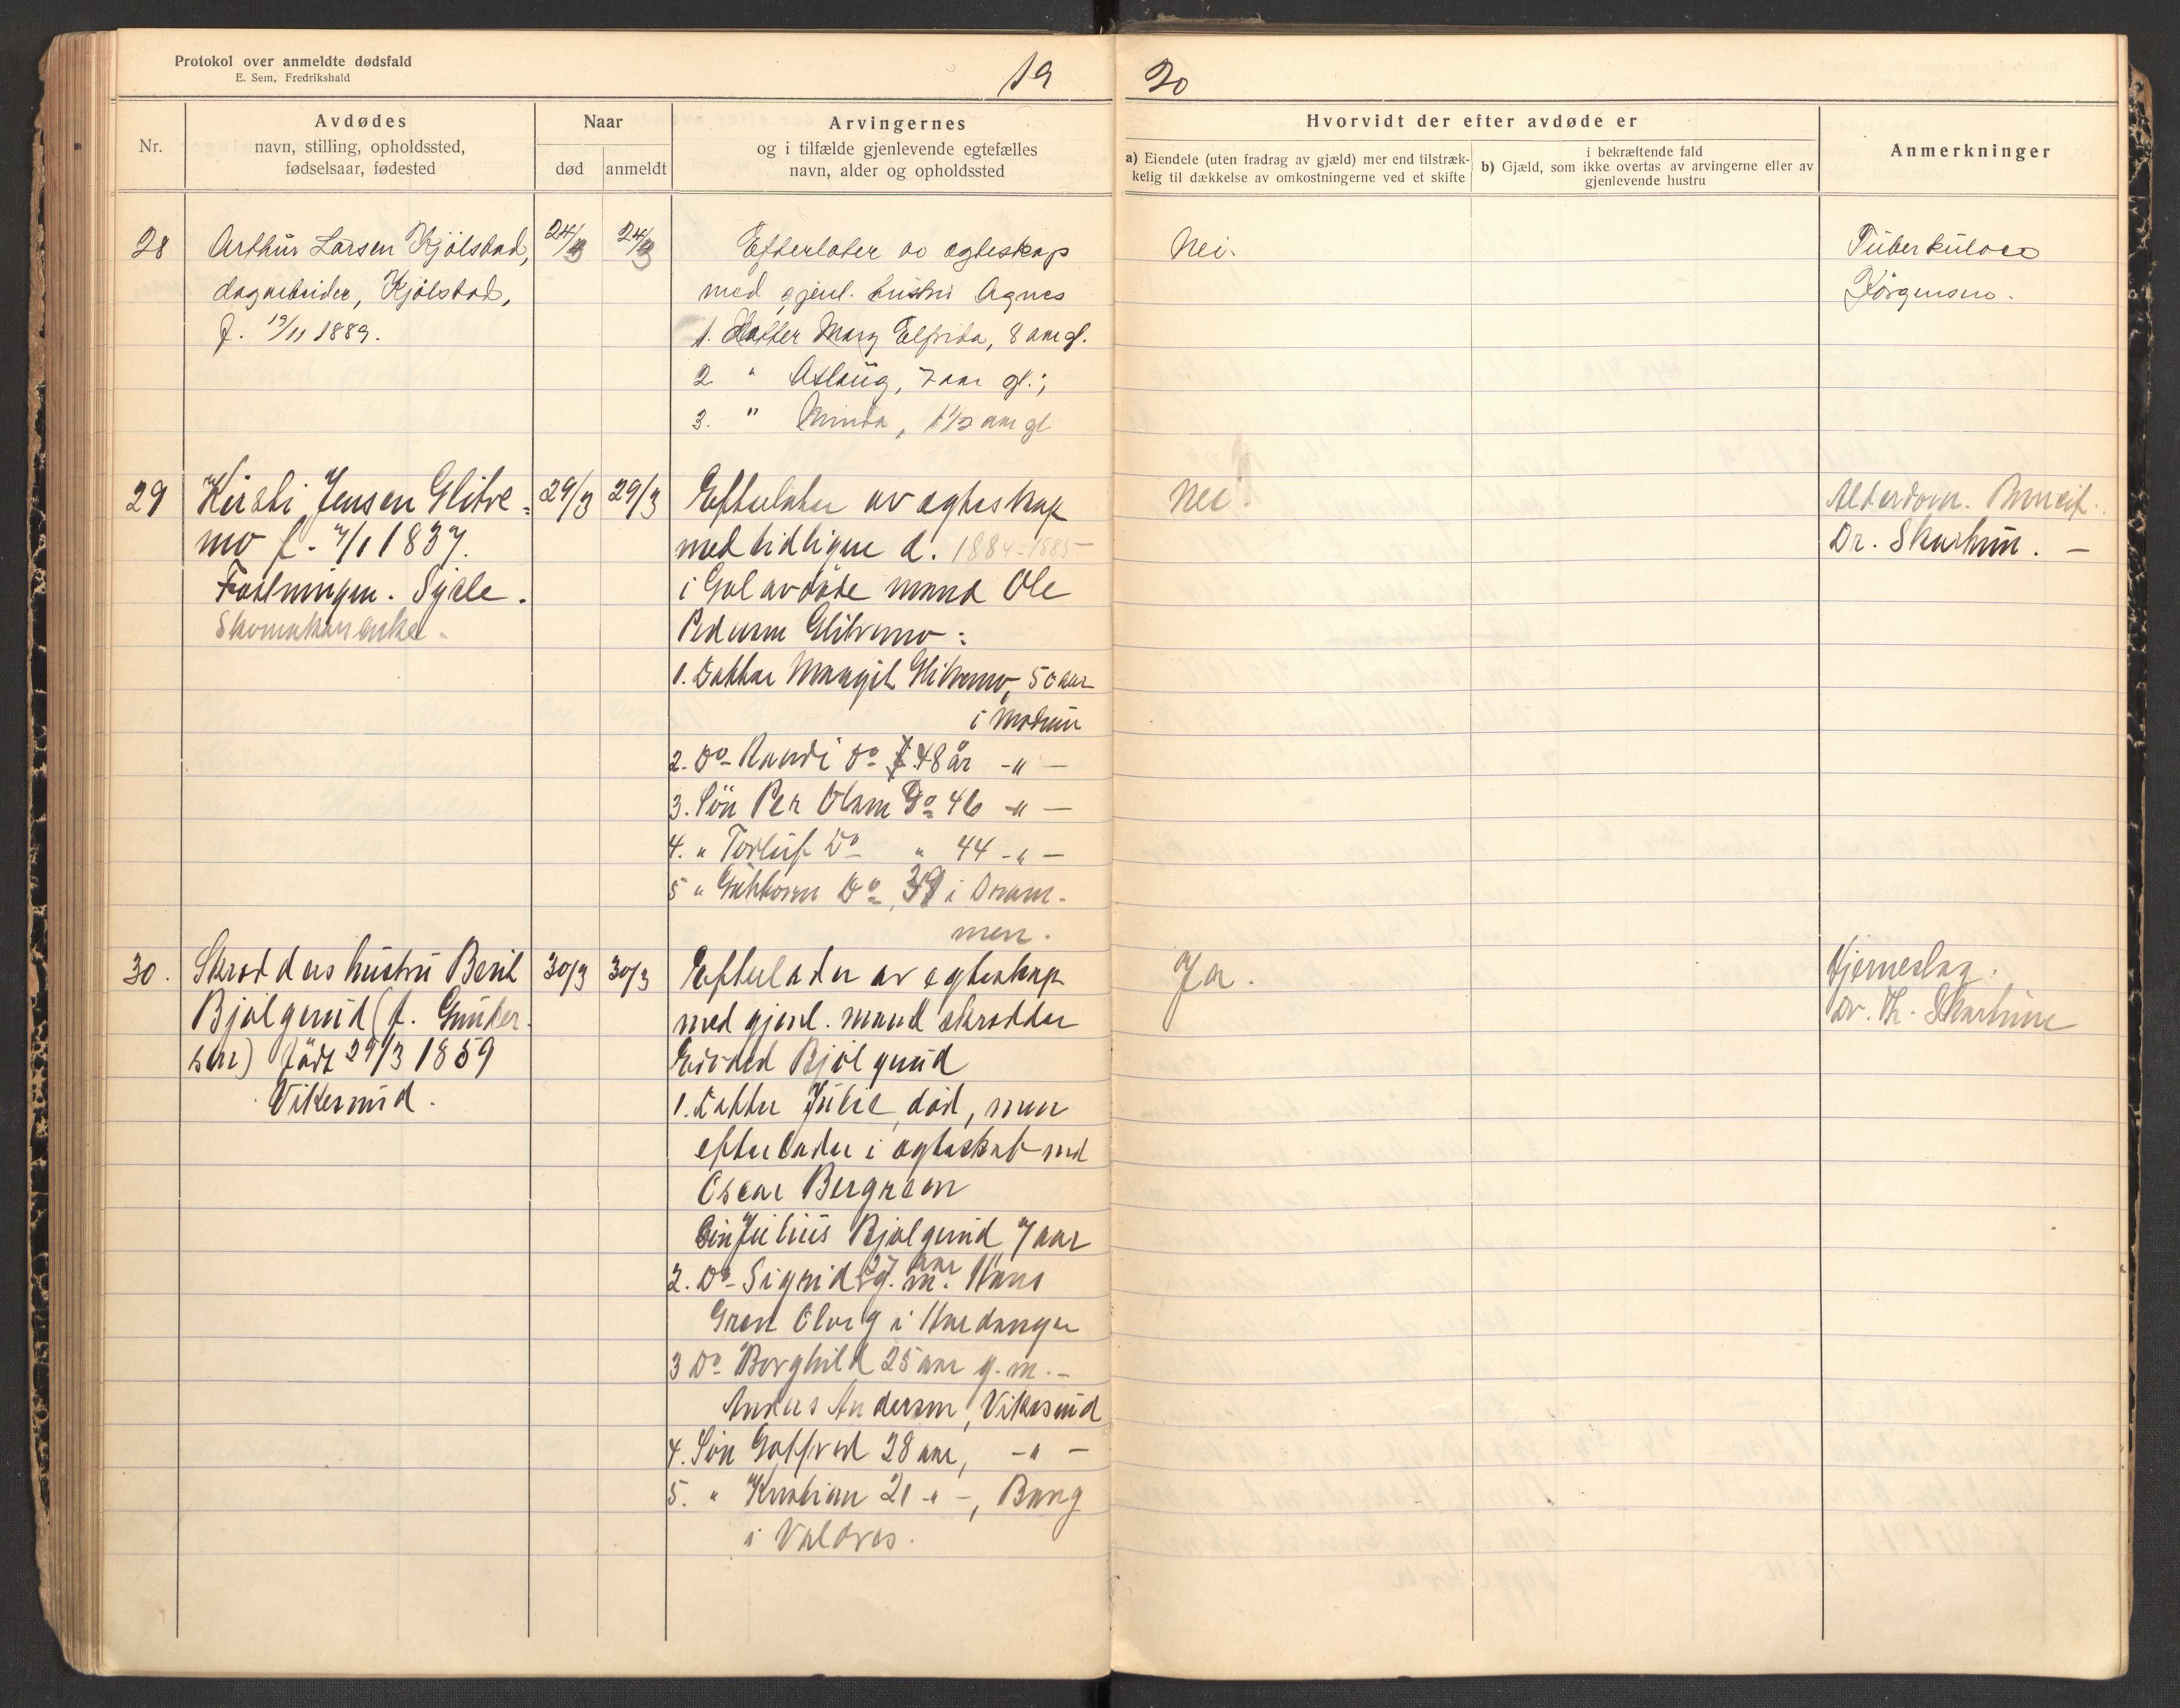 Protokol over anmeldte dødsfald
E. Sem, Fredrikshald
19
20
Nr.
Avdødes
navn, stilling, opholdssted,
fødselsaar, fødested
Naar
død
anmeldt
Arvingernes
og i tilfælde gjenlevende egtefælles
navn, alder og opholdssted
Hvorvidt der efter avdøde er
a) Eiendele (uten fradrag av gjæld) mer end tilstræk-
kelig til dækkelse av omkostningerne ved et skifte
i bekræftende fald
b) Gjæld, som ikke overtas av arvingerne eller av
gjenlevende hustru
Anmerkninger
28
Arthur Larsen Kjölstad,
dagarbeider, Kjölstad,
f. 19/11 1889.
24/3
24/3
Efterlater av egteskap
med gjenl. hustru Agnes
1. Datter Mary Elfrida, 8 aar gl.
2 " Aslaug, 7 aar gl.;
3. " Minda, 1 1/2 aar gl
Nei.
Tuberkulose
Jörgensen.
29
Kirsti Jensen Glitre=
mo f. 7/1 1837.
Fostningen. Sysle.
Skomakerenke.
29/3
29/3
Efterlater av egteskap
med tidligere d. 1884-1885
i Gol avdöde mand Ole
Pedersen Glitremo:
1. Datter Margit Glitremo, 50 aar
i Modum
2. Do Randi Do 48 år -"-
3. Sön Per Olsen Do 46 -"-
4. " Torleif Do " 44 -"-
5 " Guttorm Do, 39 i Dram-
men.
Nei.
Alderdom.
Dr. Skarhun. -
30.
Skrædders hustru Berit
Bjölgerud (f. Gunder-
sen) födt 29/3 1859
Vikersund.
30/3
30/3
Efterlader av egteskap
med gjenl. mand skrædder
Edvard Bjölgerud
1. Datter Julie, död, men
efterlader i egteskab med
Oscar Bergreen
Sön Julius Bjölgerud 7 aar
2. Do Sigrid 27 aar g. m. Hans
Gren i Hardanger
3 Do Borghild 25 aar g. m.-
Anders Andersen, Vikesund
4. Sön Gotfred 28 aar, -"-
5. " Kristian 21 -"-, Bang
i Valdres.
Ja.
Hjerneslag.
Dr. Th. Skarhune